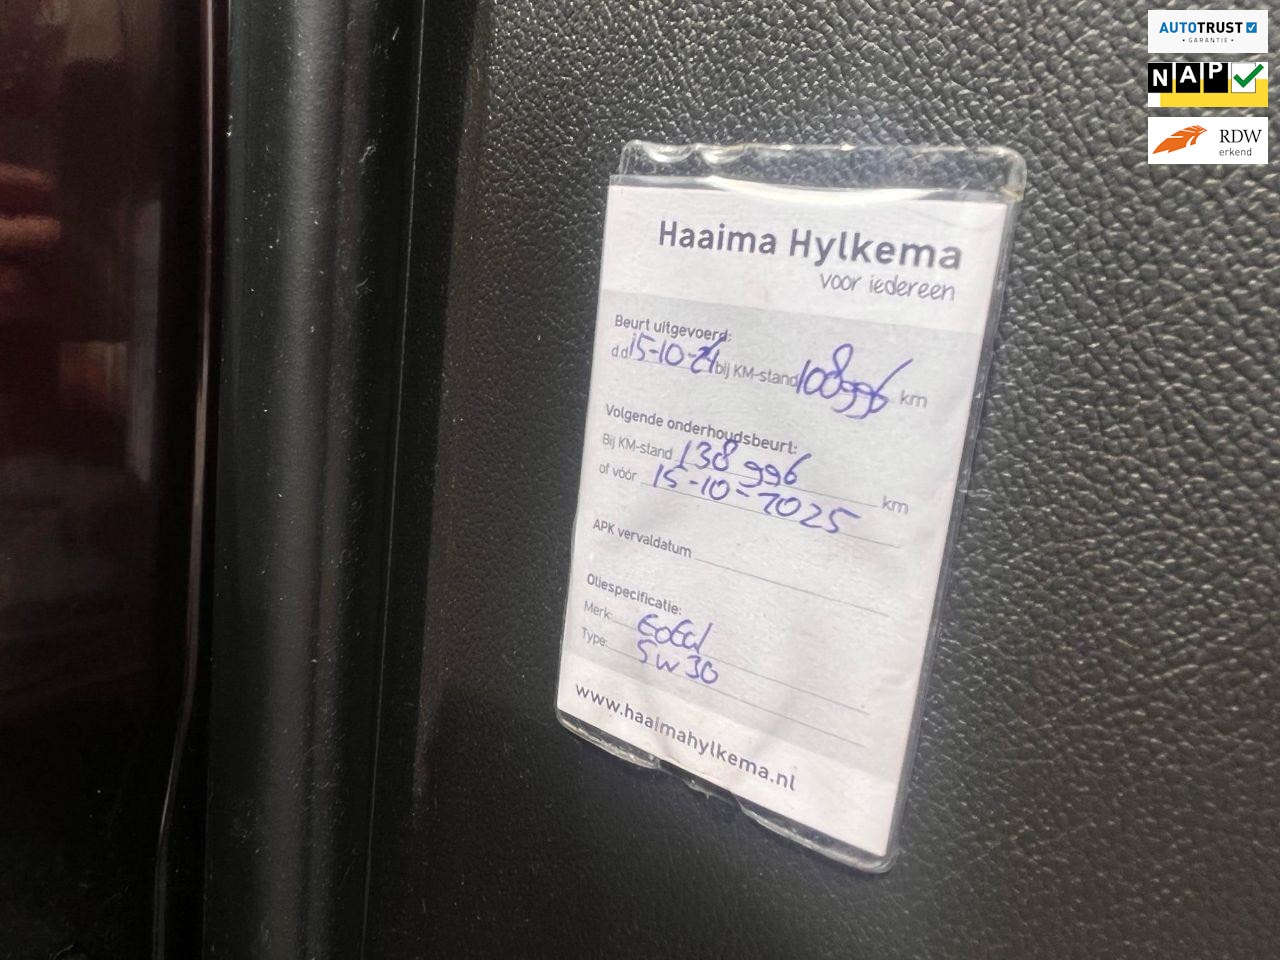 AUTOTRUST
• GARANTIE •
NAP
RDW
erkend
Haaima Hylkema
voor iedereen
Beurt uitgevoerd:
d.d 15-10-24 bij KM-stand 108996 km
Volgende onderhoudsbeurt:
Bij KM-stand 138996 km
of vóór 15-10-2025
APK vervaldatum
Oliespecificatie:
Merk: total
Type: 5w30
www.haaimahylkema.nl